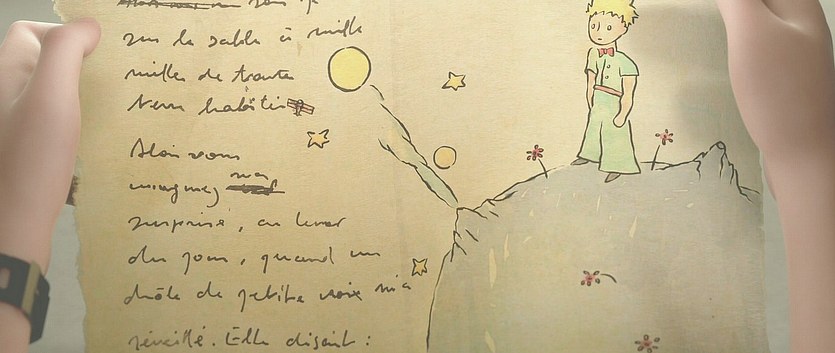 sur le sable à mille
milles de toute
terre habitée
Alors vous
imaginez ma
surprise, au lever
du jour, quand une
drôle de petite voix m'a
réveillé. Elle disait :